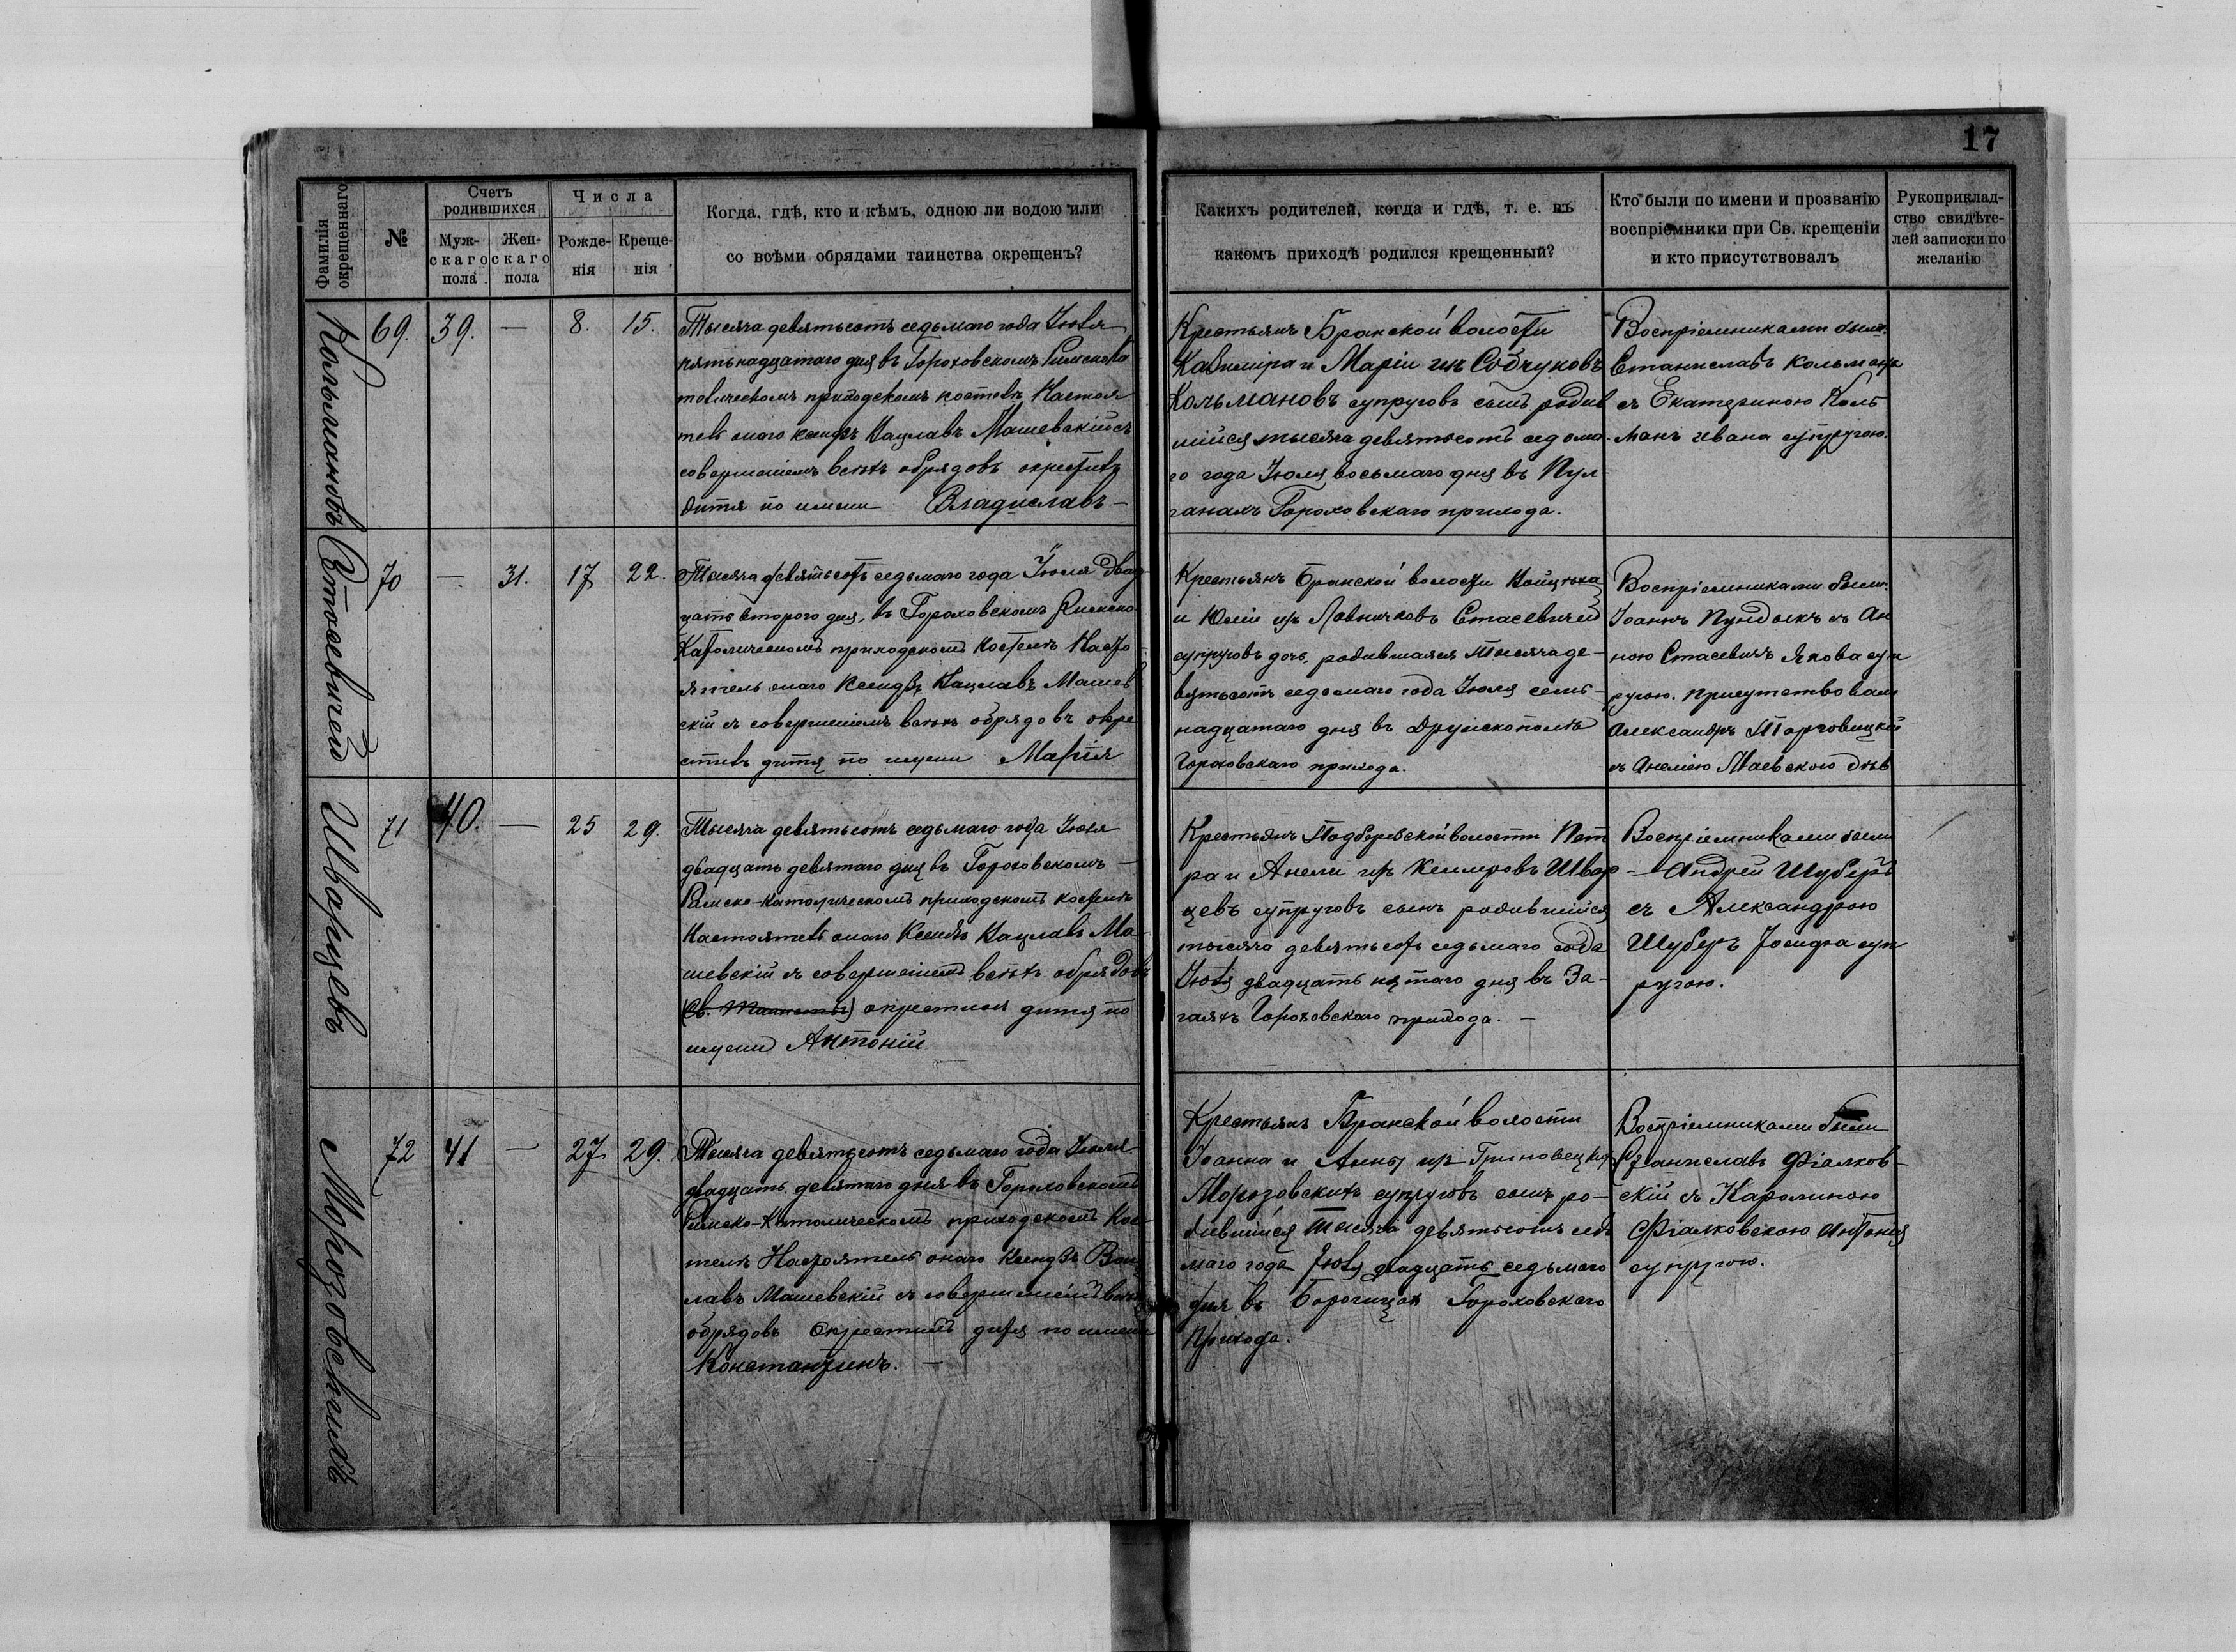 17
Фамилія окрещеннаго
№
Счетъ родившихся
Мужскаго пола
Женскаго пола
Числа
Рожденія
Крещенія
Когда, гдѣ, кто и кѣмъ, одною ли водою или
со всѣми обрядами таинства окрещенъ?
Какихъ родителей, когда и гдѣ, т. е. въ
какомъ приходѣ родился крещенный?
Кто были по имени и прозванію
воспріемники при Св. крещеніи
и кто присутствовалъ
Рукоприклад-
ство свидѣте-
лей записки по
желанію
Кольмановъ
69. 39. — 8. 15.
Тысяча девятьсотъ седьмаго года Іюля
пятьнадцатаго дня въ Гороховскомъ Римскока
толическомъ приходскомъ костелѣ Настоя
тель онаго ксендзъ Вацлавъ Машевскій съ
совершеніемъ всѣхъ обрядовъ окрестилъ
дитя по имени Владиславъ —
Крестьянъ Бранской волости
Казиміра и Маріи изъ Собчуковъ
Кольмановъ супруговъ сынъ родив
шійся тысяча девятьсотъ седьма-
го года Іюля восьмаго дня въ Пул-
ганахъ Гороховскаго прихода.
Воспріемниками были
Станиславъ Кольманъ
съ Екатериною Коль
манъ Ивана супругою.
Стасевичей
70 — 31. 17 22.
Тысяча девятьсотъ седьмаго года Іюля двад-
цать второго дня, въ Гороховскомъ Римско
Католическомъ приходскомъ костелѣ Насто-
ятель онаго Ксендзъ Вацлавъ Машев
скій съ совершеніемъ всѣхъ обрядовъ окре
стилъ дитя по имени Марія
Крестьянъ Бранской волости Войцѣха
и Юліи изъ Стасевичей
супруговъ дочь, родившаяся тысяча де-
вятьсотъ седьмаго года Іюля семь-
надцатаго дня въ Дружкополѣ
Гороховскаго прихода.
Воспріемниками были
Іоаннъ Пундыкъ съ Ан
ною Стасевичъ Якова суп
ругою. Присутствовали
Александръ Торговицкій
съ Анеліею Маевскою дѣв
Шварцевъ
71 40. — 25 29.
Тысяча девятьсотъ седьмаго года Іюля
двадцать девятаго дня въ Гороховскомъ —
Римско-Католическомъ приходскомъ костелѣ
Настоятель онаго Ксендзъ Вацлавъ Ма-
шевскій съ совершеніемъ всѣхъ обрядовъ
окрестилъ дитя по
имени Антоній
Крестьянъ Подберезской волости Пет
ра и Анели изъ Швар
цевъ супруговъ сынъ родившійся
тысяча девятьсотъ седьмаго года
Іюля двадцать пятаго дня въ За-
гаяхъ Гороховскаго прихода. —
Воспріемниками были
— Андрей Шуберъ
съ Александрою
Шуберъ Іосифа суп
ругою.
Морозовскихъ
72 41 — 27 29.
Тысяча девятьсотъ седьмаго года Іюля
двадцать девятаго дня въ Гороховскомъ
Римско-Католическомъ приходскомъ Кос-
телѣ Настоятель онаго Ксендзъ Вац
лавъ Машевскій съ совершеніемъ всѣхъ
обрядовъ окрестилъ дитя по имени
Константинъ. —
Крестьянъ Бранской волости
Іоанна и Анны изъ
Морозовскихъ супруговъ сынъ ро-
дившійся тысяча девятьсотъ седь
маго года Іюля двадцать седьмаго
дня въ Борочицахъ Гороховскаго
прихода.
Воспріемниками были
Станиславъ Фіалков-
скій съ Каролиною
Фіалковскою Антонія
супругою.